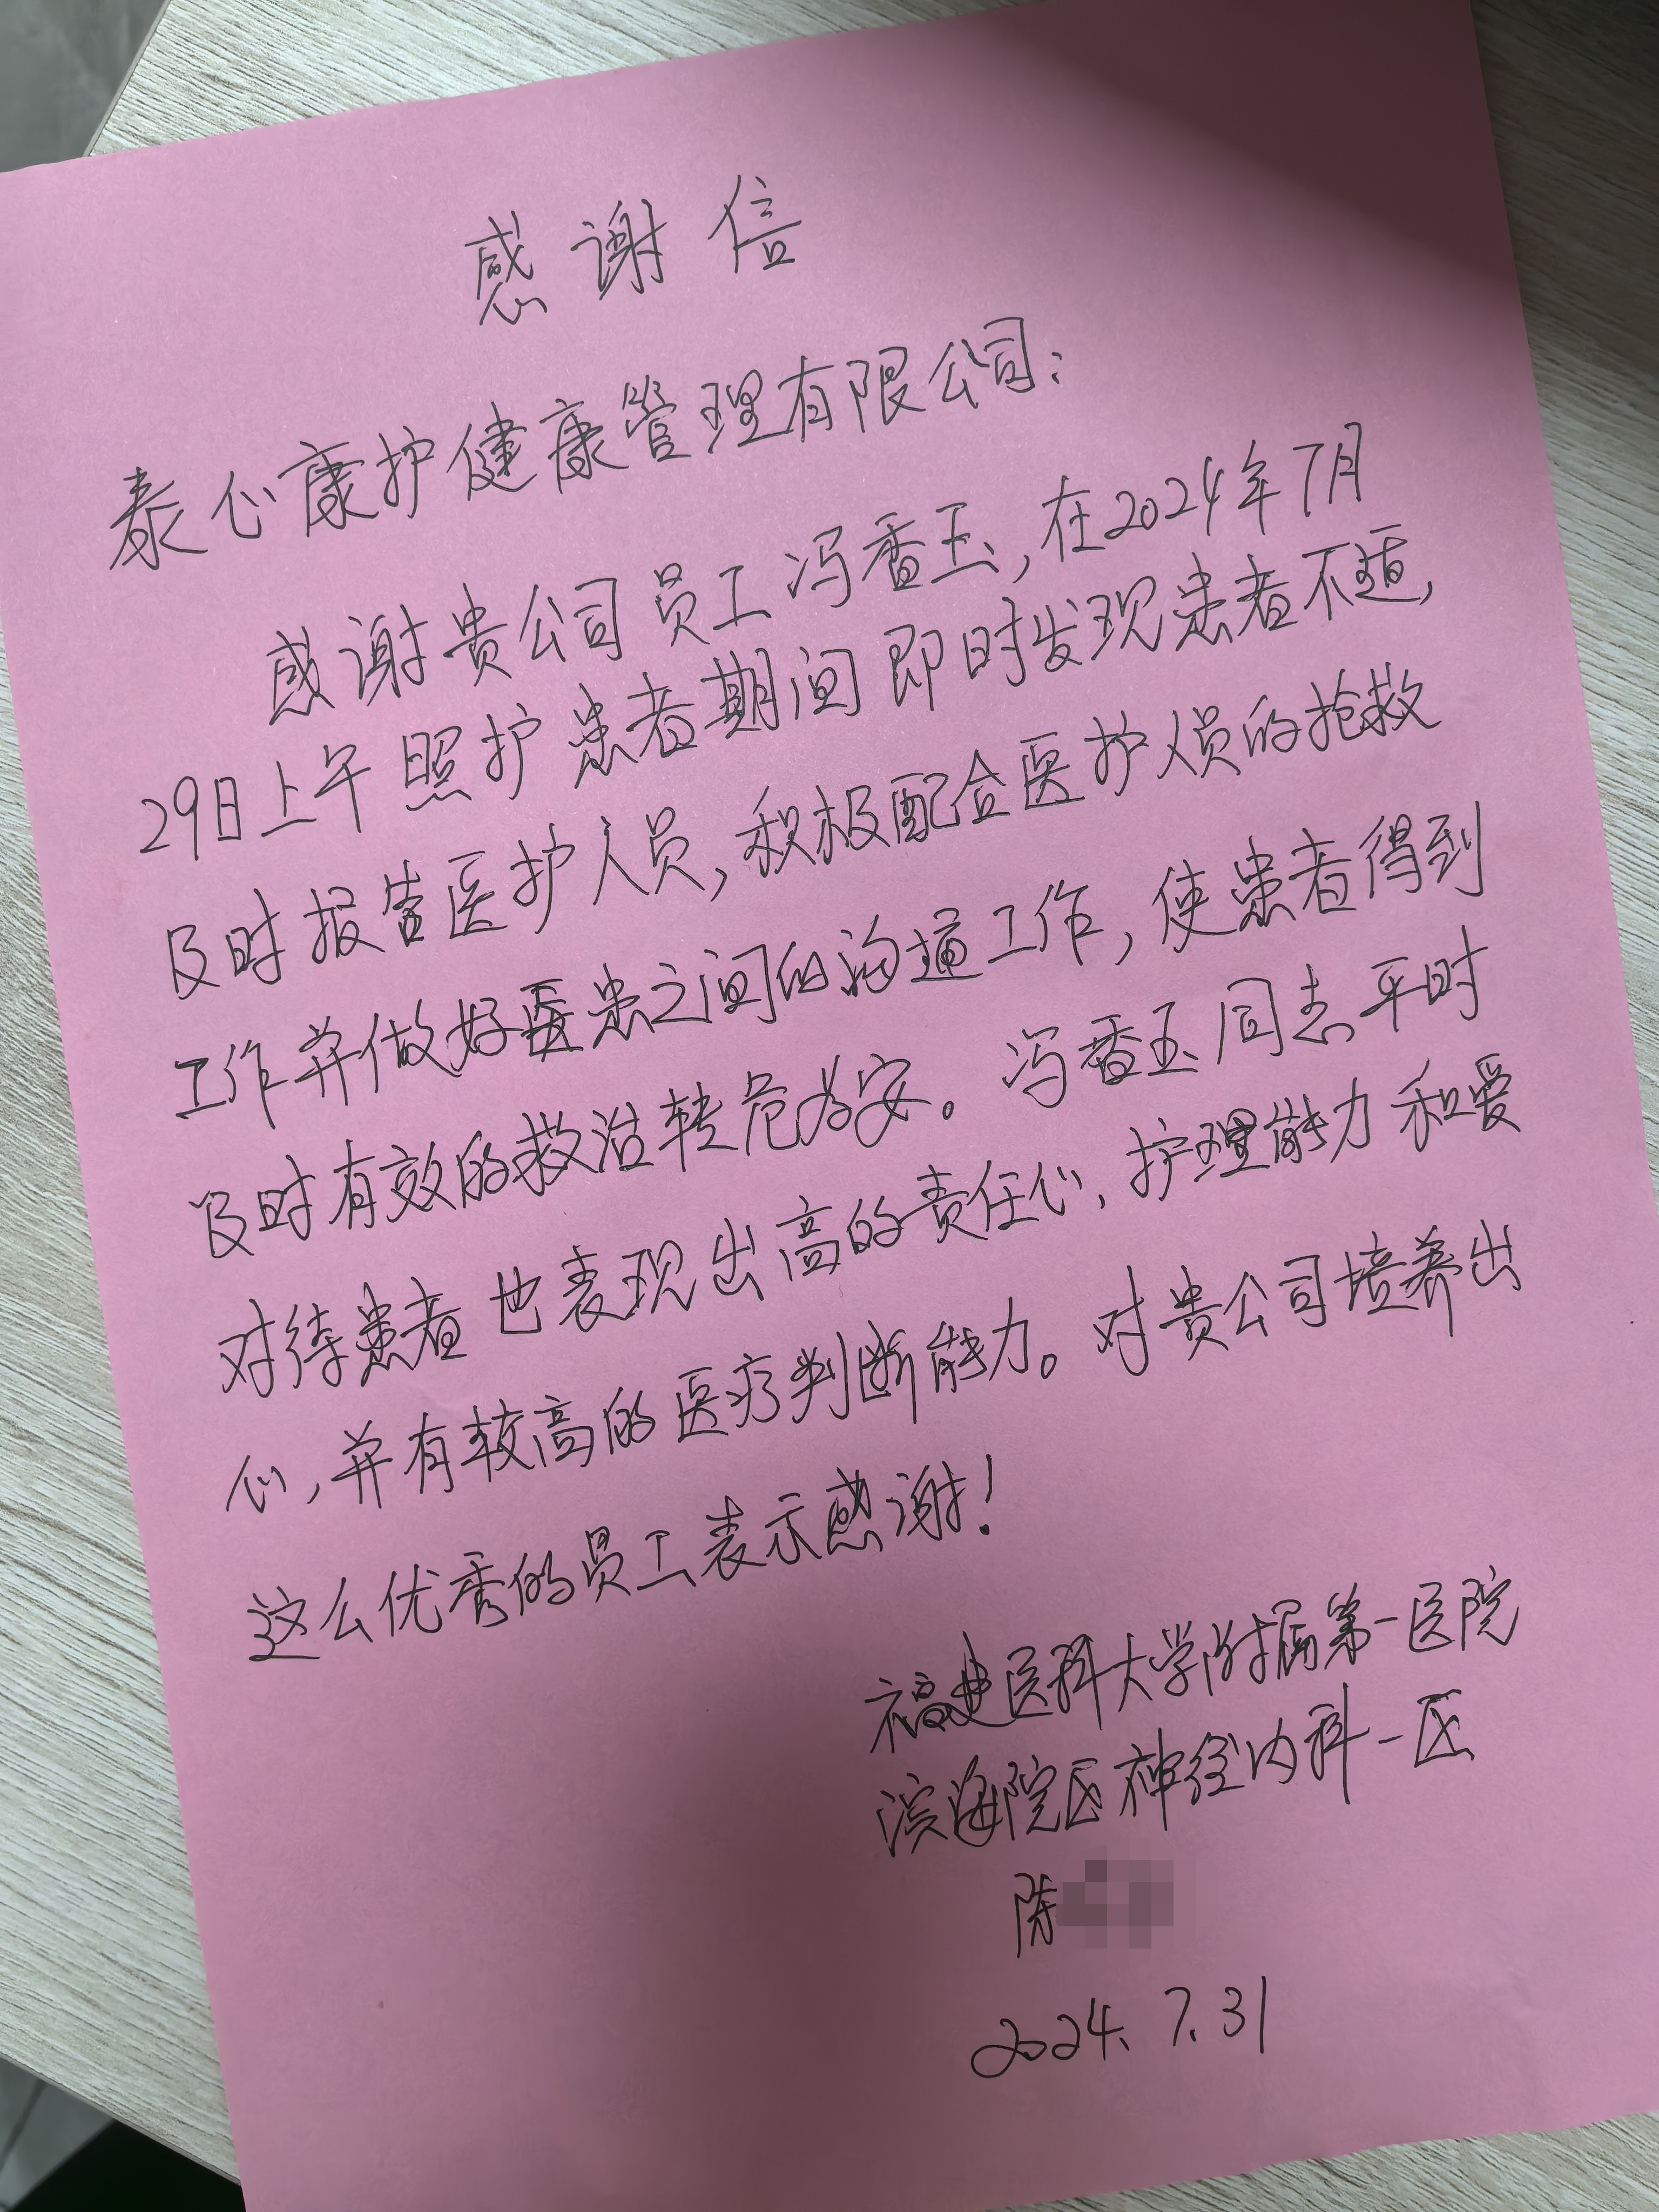 感谢信
泰心康护健康管理有限公司：
感谢贵公司员工冯香玉，在2024年7月
29日上午照护患者期间即时发现患者不适，
及时报告医护人员，积极配合医护人员的抢救
工作并做好医患之间的沟通工作，使患者得到
及时有效的救治转危为安。冯香玉同志平时
对待患者也表现出高的责任心、护理能力和爱
心，并有较高的医疗判断能力。对贵公司培养出
这么优秀的员工表示感谢！
福建医科大学附属第一医院
滨海院区神经内科一区
陈
2024.7.31